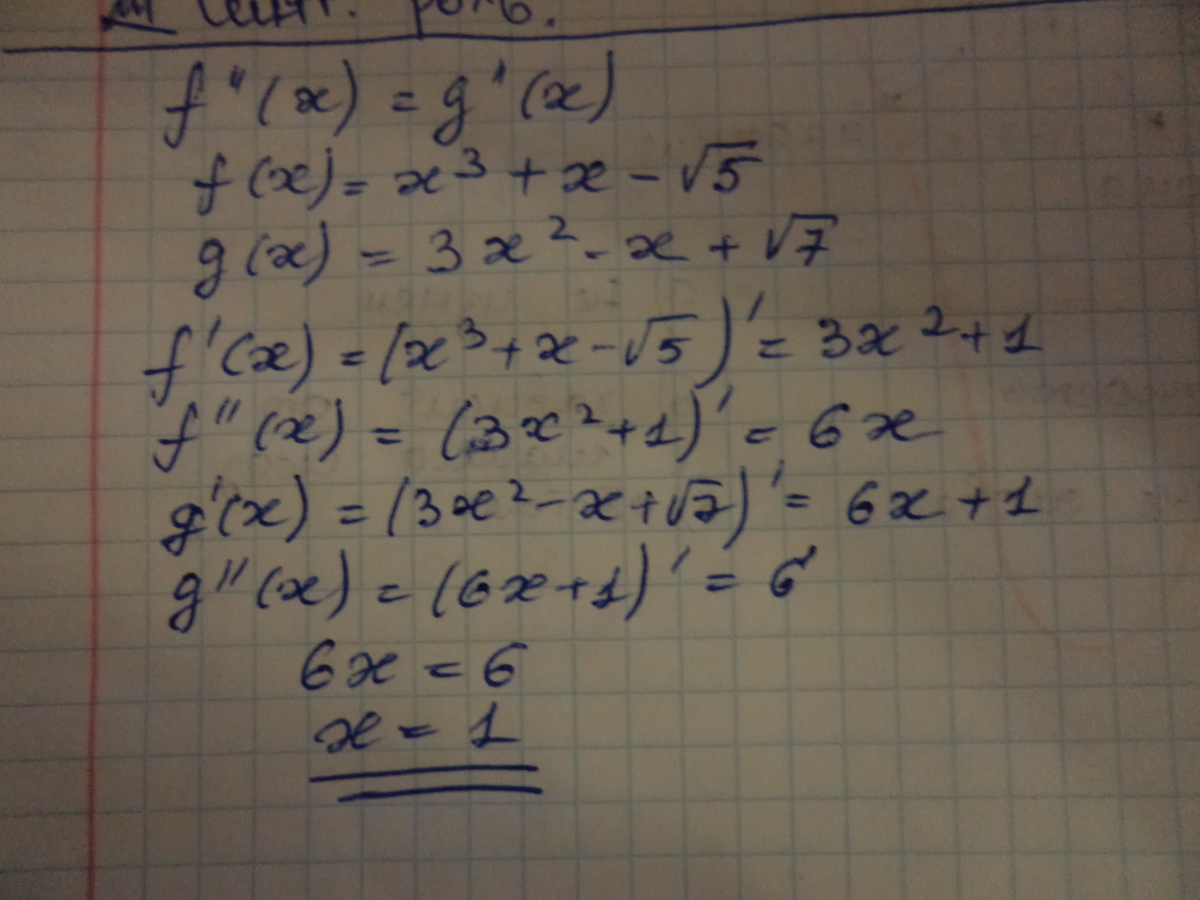 f''(x) = g'(x)
f(x) = x³ + x - √5
g(x) = 3x² - x + √7
f'(x) = (x³ + x - √5)' = 3x² + 1
f''(x) = (3x² + 1)' = 6x
g'(x) = (3x² - x + √7)' = 6x + 1
g''(x) = (6x + 1)' = 6
6x = 6
x = 1